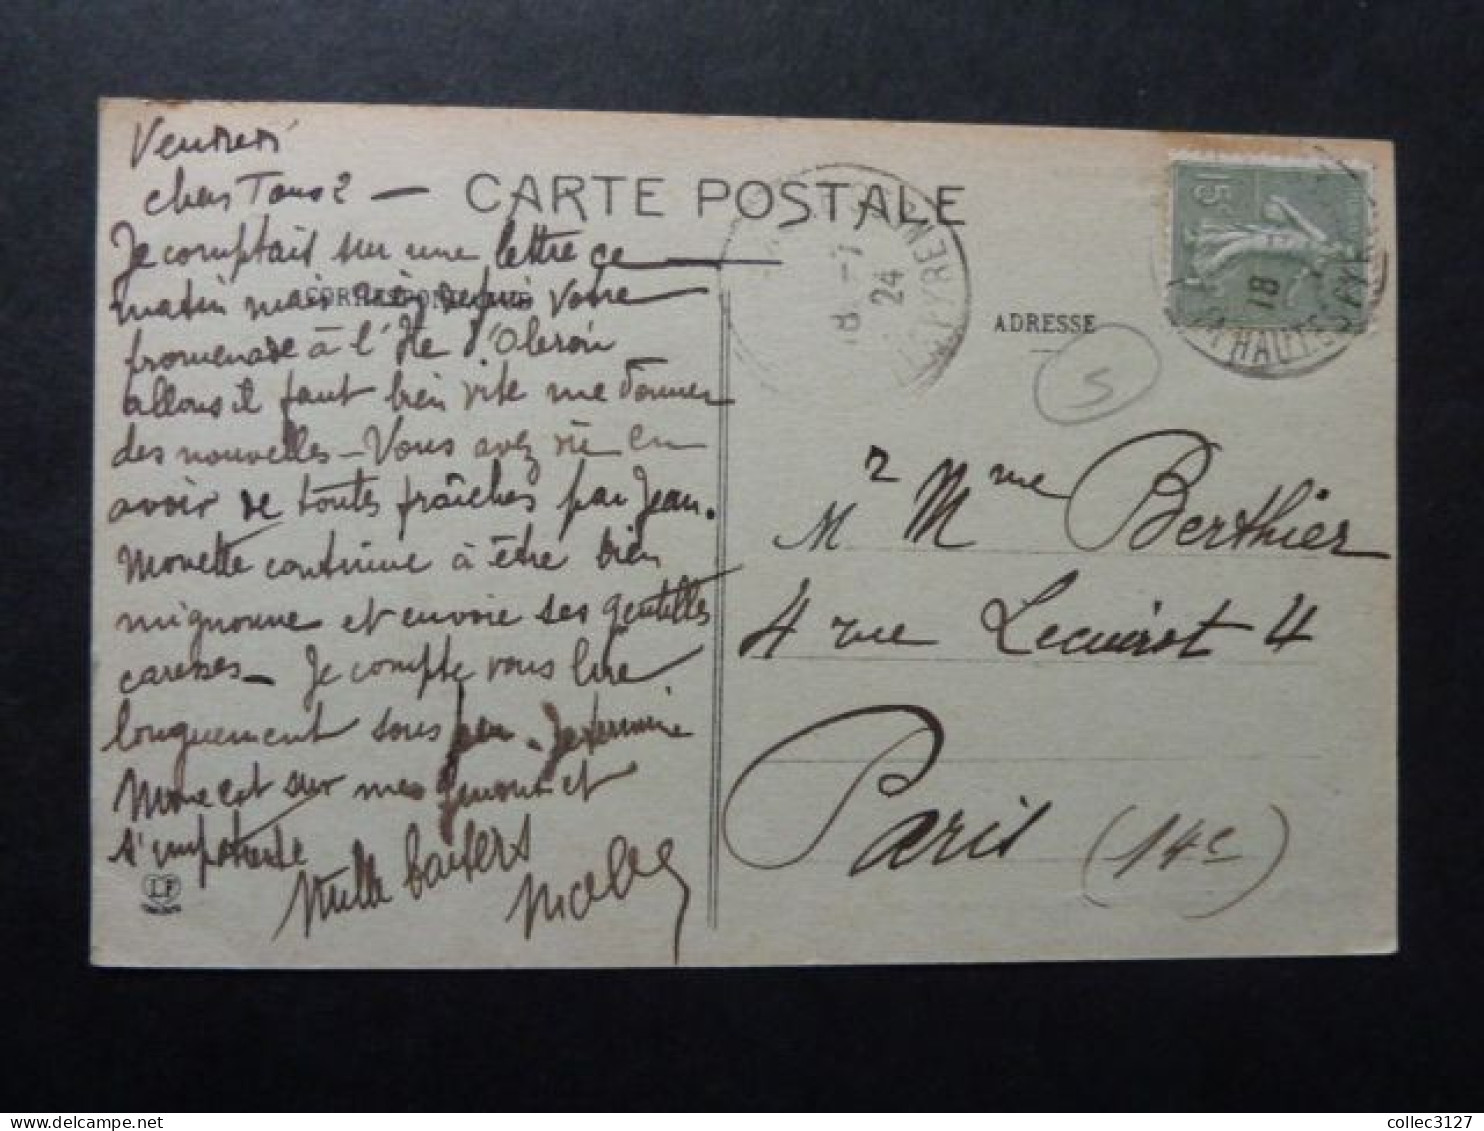 Vendredi
Chers Tous 2 —
CARTE POSTALE
Je comptais sur une lettre ce
matin mais rien depuis votre
CORRESPONDANCE
promenade à l'Ile d'Oleron
allons il faut bien vite me donner
des nouvelles — Vous avez dû en
avoir de toutes fraîches par Jean.
Monette continue à être bien
mignonne et envoie ses gentilles
caresses — Je compte vous lire
longuement sous peu. Je termine
Mone est sur mes genoux et
s'impatiente
Mille baisers
LF
18 -7
24
HAUTES PYRENEES
15c
18
HAUTES PYRENEES
ADRESSE
5
Mr Mme Berthier
4 rue Lecuirot 4
Paris (14e)
collec3127